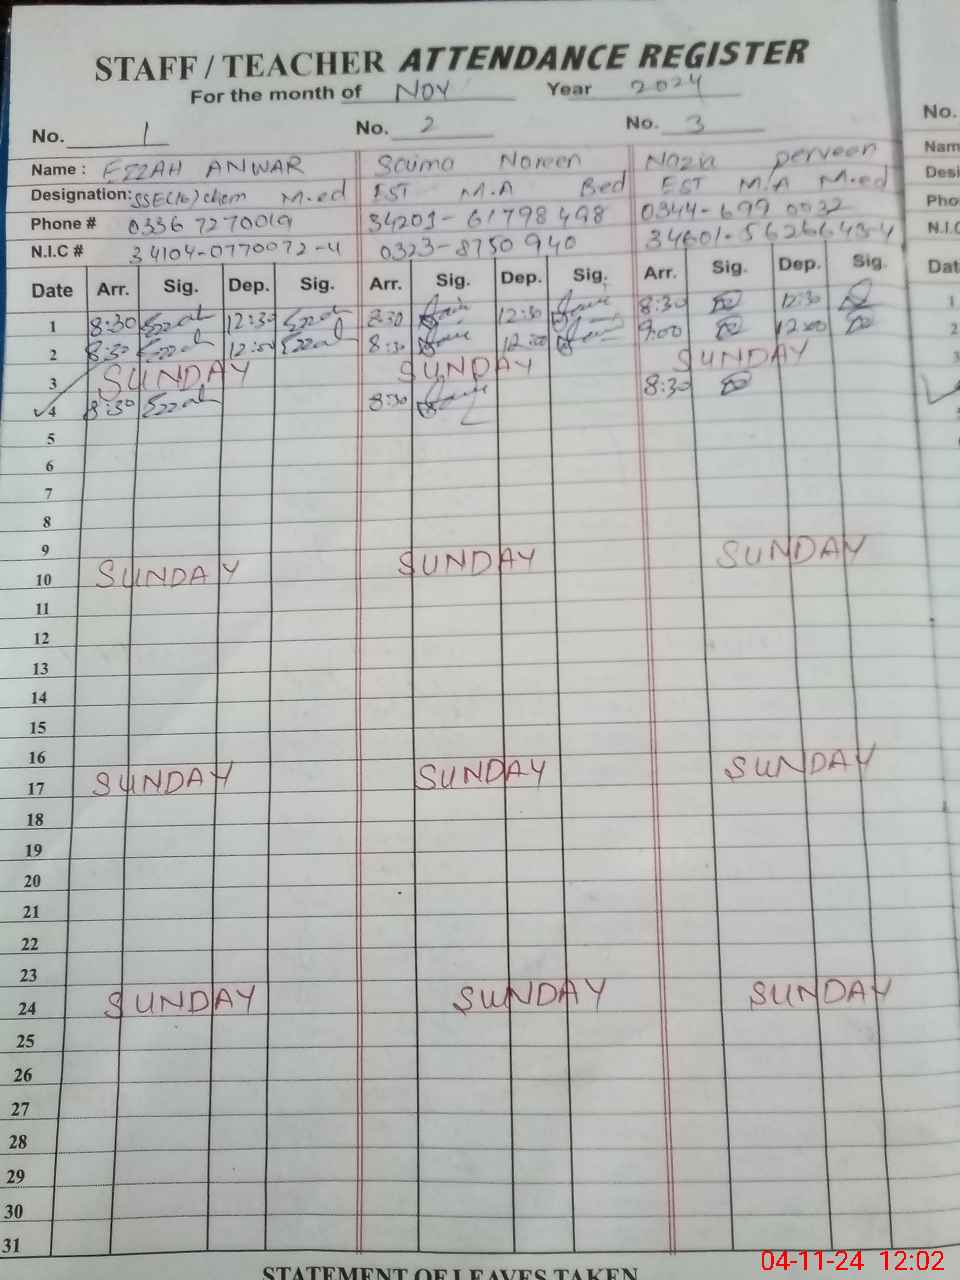 STAFF / TEACHER ATTENDANCE REGISTER
For the month of NOV Year 2024
No. 1 No. 2 No. 3 No.
Name : EZZAH ANWAR Saima Noreen Nazia perveen Nam
Designation: SSE(16) chem M.ed EST M.A Bed EST M.A M.ed Desi
Phone # 0336 7270019 34201-61798498 0344-699 0032 Pho
N.I.C # 34104-0770072-4 0323-8750 940 N.I.C
Date Arr. Sig. Dep. Sig. Arr. Sig. Dep. Sig. Arr. Sig. Dep. Sig. Dat
1 8:30 Ezzah 12:30 Ezzah 8:30 12:30 8:30 12:30 1
2 8:30 Ezzah 12:00 Ezzah 8:30 12:00 9:00 12:00 2
3 SUNDAY SUNDAY SUNDAY 3
4 8:30 Ezzah 8:30 8:30
5
6
7
8
9
10 SUNDAY SUNDAY SUNDAY
11
12
13
14
15
16
17 SUNDAY SUNDAY SUNDAY
18
19
20
21
22
23
24 SUNDAY SUNDAY SUNDAY
25
26
27
28
29
30
31
STATEMENT OF LEAVES TAKEN
04-11-24 12:02